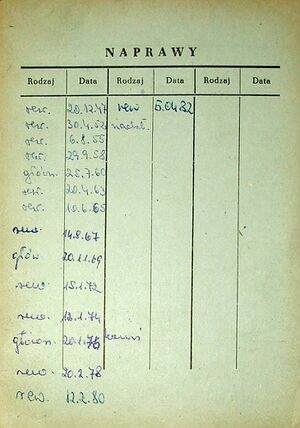 NAPRAWY
Rodzaj Data Rodzaj Data Rodzaj Data
rew. 20.12.47 rew 5.04.82
rew. 30.4.52
rew. 6.8.55
rew. 29.9.58
główn. 25.7.60
rew. 20.4.63
rew. 10.6.65
rew. 14.9.67
główn. 20.11.69
rew. 15.1.72
rew. 12.1.74
główn. 20.1.76
rew. 20.2.78
rew. 12.2.80